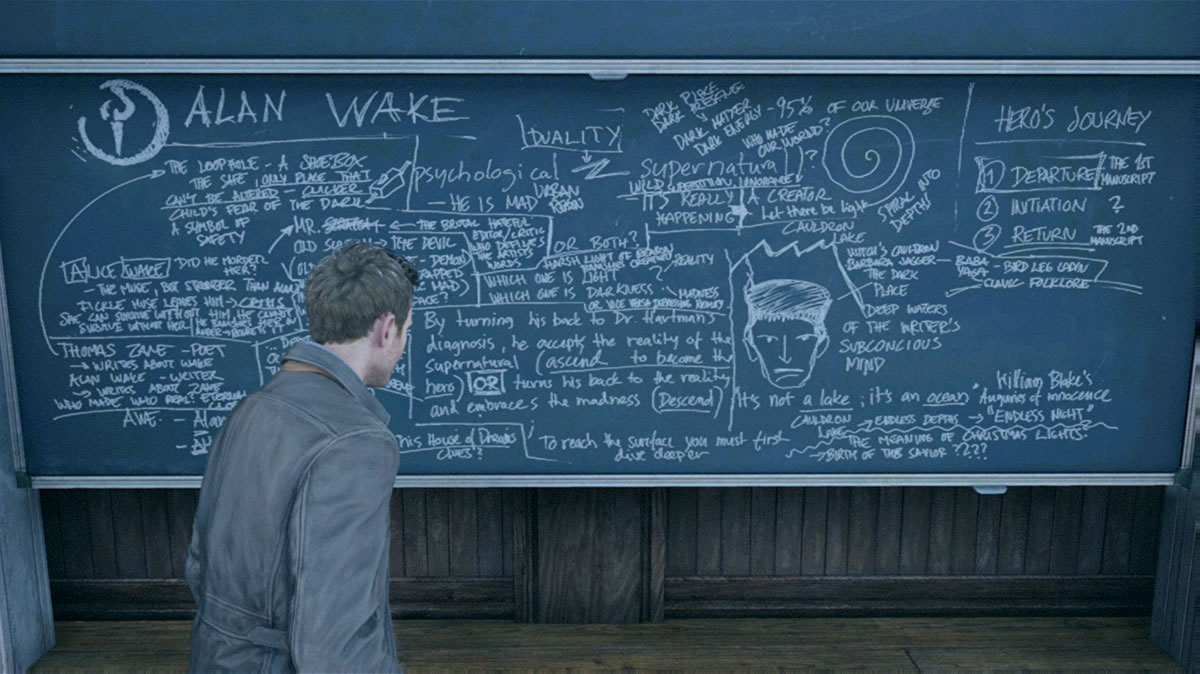 ALAN WAKE
THE LOOPHOLE - A SHOEBOX
THE SAFE, ONLY PLACE THAT
CAN'T BE ALTERED - CLICKER
CHILD'S FEAR OF THE DARK
A SYMBOL OF
SAFETY
MR. SCRATCH ← THE BRUTAL HATEFUL
EDITOR/CRITIC
WHO DEFINES
THE ARTISTS
WORDS
THE DEVIL
ALICE WAKE DID HE MURDER
HER?
- THE MUSE, BUT STRONGER THAN
FICKLE MUSE LEAVES HIM → CRISIS
SHE CAN SURVIVE WITHOUT HIM, HE CAN'T
SURVIVE WITHOUT HER
THOMAS ZANE - POET
→ WRITES ABOUT WAKE
ALAN WAKE - WRITER
→ WRITES ABOUT ZANE
WHO MADE WHO REAL? ETERNAL
AWE - Alan
DUALITY
psychological
- HE IS MAD
supernatural
- IT'S REALLY
HAPPENING
A CREATOR
Let there be light
OR BOTH?
HARSH LIGHT OF REASON
BANISHES CREATIVITY
/REALITY
WHICH ONE IS LIGHT
WHICH ONE IS DARKNESS
MADNESS
By turning his back to Dr. Hartman's
diagnosis, he accepts the reality of the
supernatural (ascend to become the
hero) OR turns his back to the reality
and embraces the madness (Descend)
This House of Dreams
CLUES?
To reach the surface you must first
dive deeper
DARK PLACE
DARK MATTER
DARK ENERGY - 95% OF OUR UNIVERSE
WHO MADE
OUR WORLD?
SPIRAL INTO
DEPTHS
CAULDRON
LAKE
WITCH'S CAULDRON
BARBARA JAGGER - BABA
YAGA - BIRD LEG CABIN
- THE DARK
PLACE
- SLAVIC FOLKLORE
DEEP WATERS
OF THE WRITER'S
SUBCONCIOUS
MIND
It's not a lake; it's an ocean
William Blake's
Auguries of innocence
CAULDRON
LAKE
→ ENDLESS DEPTHS → "ENDLESS NIGHT"
→ THE MEANING OF CHRISTMAS LIGHTS-
→ BIRTH OF THE SAVIOR ????
HERO'S JOURNEY
1 DEPARTURE THE 1ST
MANUSCRIPT
2 INITIATION ?
3 RETURN THE 2ND
MANUSCRIPT